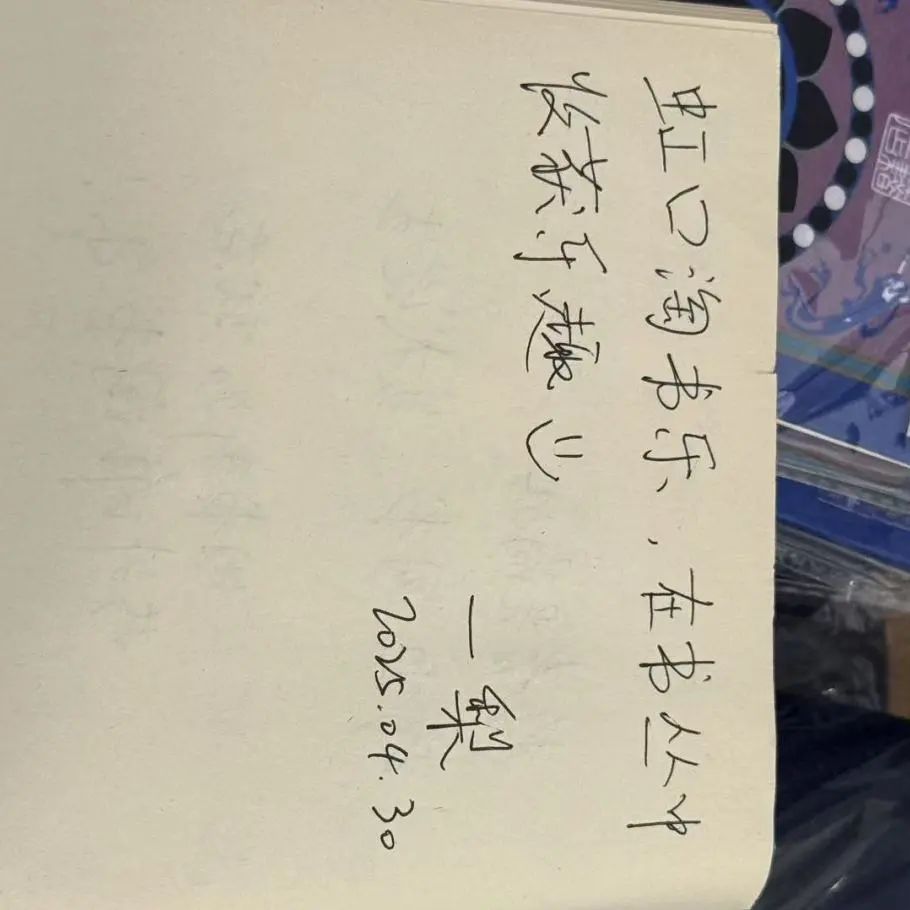 虹口淘书乐,在书丛中
收获乐趣
一梨
2025.04.30